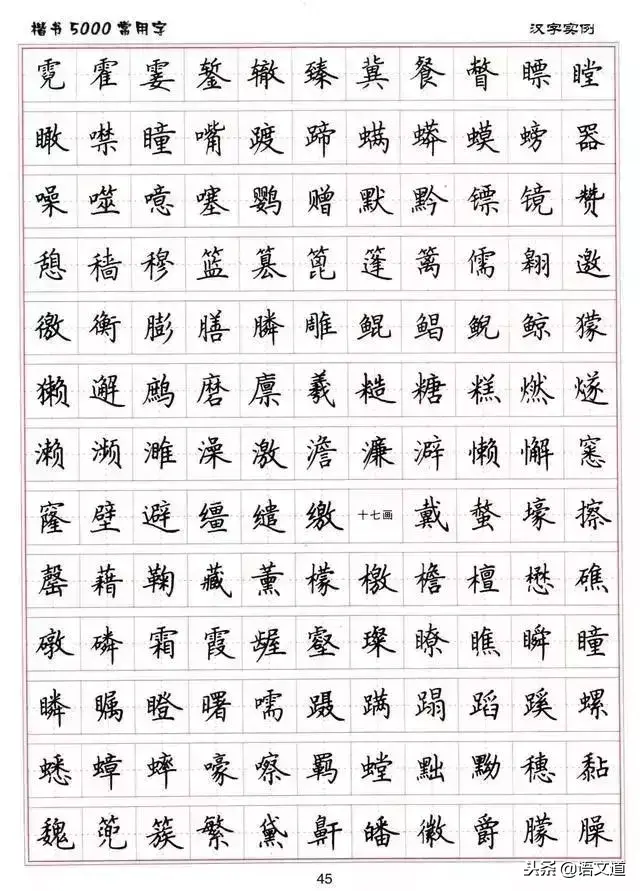 楷书5000常用字 汉字实例
霓霍霎錾辙臻冀餐瞥瞟瞠
瞰噤瞳嘴踱蹄螨蟒蟆螃器
噪噬噫噻鹦赠默黔镖镜赞
憩穑穆篮篡篦篷篱儒翱邀
徼衡膨膳膦雕鲲鲳鲵鲸獴
獭邂鹧磨廪羲糙糖糕燃燧
濑濒濉澡激澹濂澼懒懈窸
窿壁避缰缱缴十七画戴螫壕擦
罄藉鞠藏薰檬檄檐檀懋礁
礅磷霜霞龌壑璨瞭瞧瞬瞳
瞵瞩瞪曙嚅蹑蹒蹋蹈蹊螺
蟋蟑蟀嚎嚓羁螳黜黝穗黏
魏篼簇繁黛鼾皤徽爵朦臊
45
头条@语文道